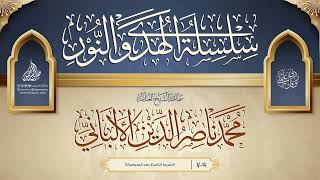 سلسلة الهدى والنور
سماحة الشيخ العلامة
محمد ناصر الدين الألباني
الشريط التاسع بعد السبعمائة
٧٠٩